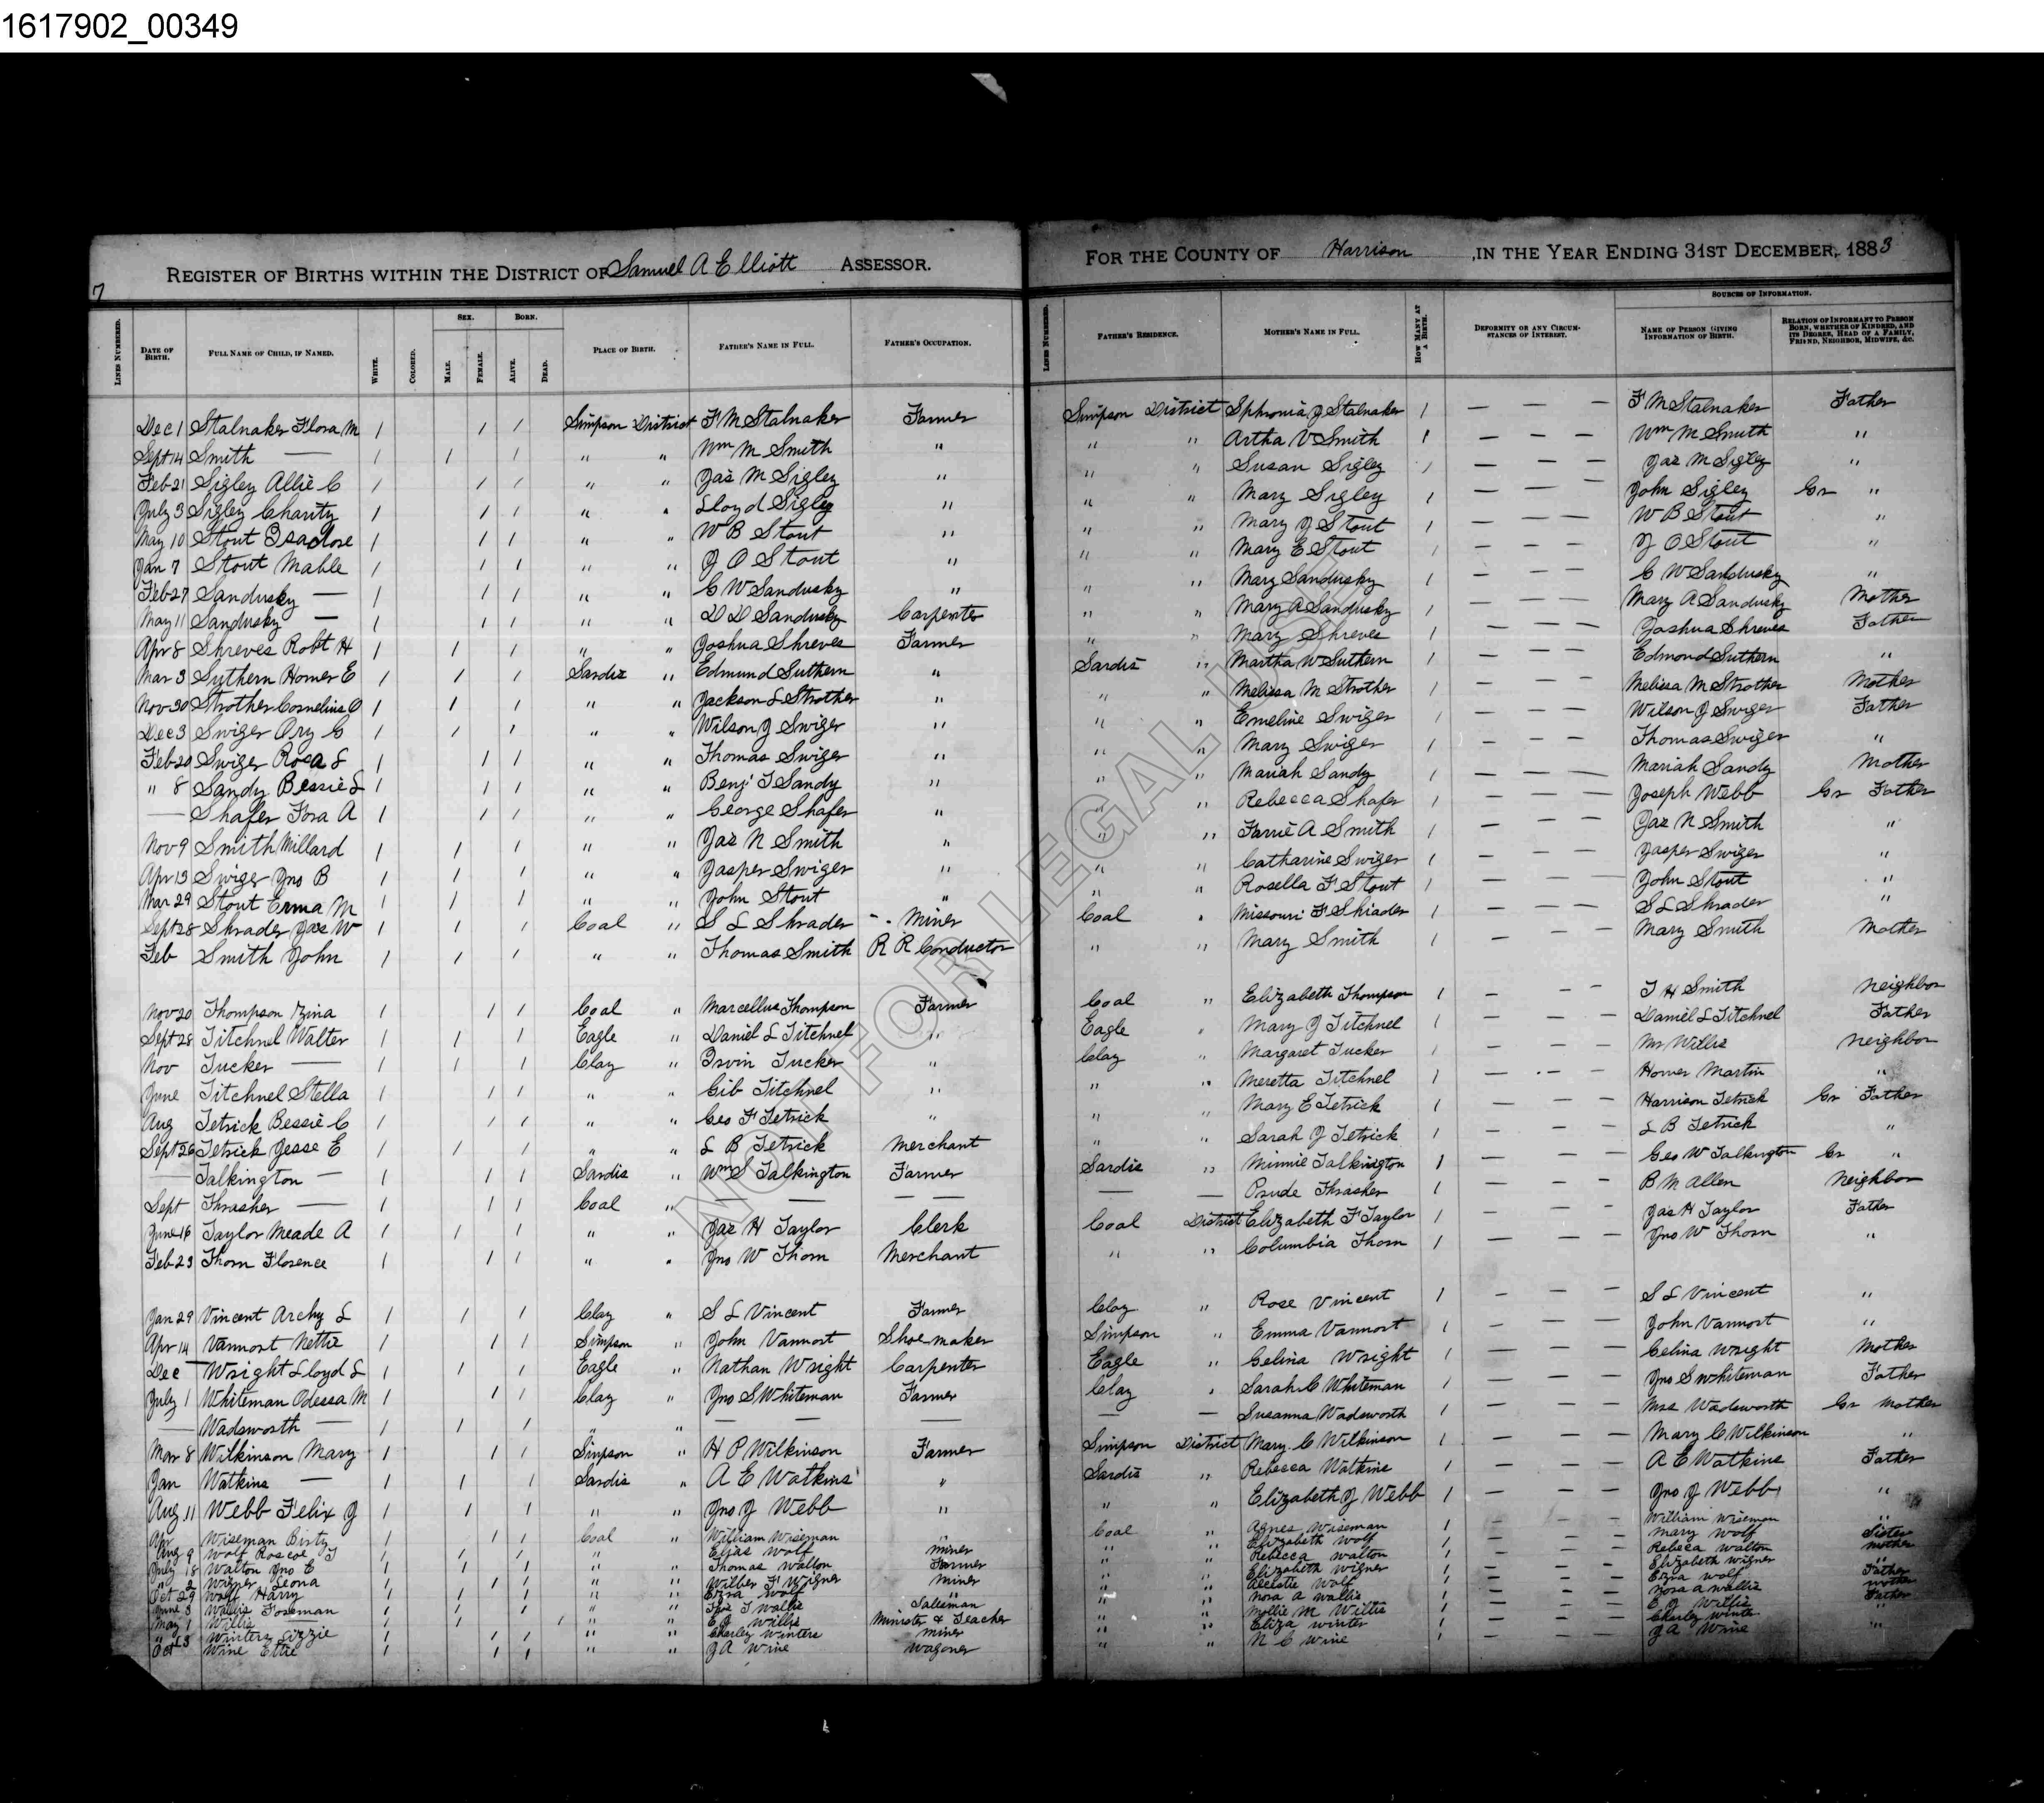 1617902_00349
7
REGISTER OF BIRTHS WITHIN THE DISTRICT OF Samuel A Elliott ASSESSOR.
FOR THE COUNTY OF Harrison, IN THE YEAR ENDING 31ST DECEMBER, 1883
LINES NUMBERED. DATE OF BIRTH. FULL NAME OF CHILD, IF NAMED. WHITE. COLORED. SEX. MALE. FEMALE. BORN. ALIVE. DEAD. PLACE OF BIRTH. FATHER'S NAME IN FULL. FATHER'S OCCUPATION. LINES NUMBERED. FATHER'S RESIDENCE. MOTHER'S NAME IN FULL. HOW MANY AT A BIRTH. DEFORMITY OR ANY CIRCUMSTANCES OF INTEREST. SOURCES OF INFORMATION. NAME OF PERSON GIVING INFORMATION OF BIRTH. RELATION OF INFORMANT TO PERSON BORN, WHETHER OF KINDRED, AND ITS DEGREE, HEAD OF A FAMILY, FRIEND, NEIGHBOR, MIDWIFE, &C.
Dec 1 Stalnaker Flora M 1 1 1 Simpson District F M Stalnaker Farmer Simpson District Sphronia J Stalnaker 1 — — — F M Stalnaker Father
Sept 14 Smith — 1 1 1 " " Wm M Smith " " " Artha V Smith 1 — — — Wm M Smith "
Feb 21 Sigley Allie C 1 1 1 " " Jas M Sigley " " " Susan Sigley 1 — — — Jas M Sigley "
July 3 Sigley Charity 1 1 1 " " Lloyd Sigley " " " Mary Sigley 1 — — — John Sigley Gr "
May 10 Stout Isadore 1 1 1 " " W B Stout " " " Mary J Stout 1 — — — W B Stout "
Jan 7 Stout Mable 1 1 1 " " J O Stout " " " Mary E Stout 1 — — — J O Stout "
Feb 27 Sandusky — 1 1 1 " " C W Sandusky " " " Mary Sandusky 1 — — — C W Sandusky "
May 11 Sandusky — 1 1 1 " " D D Sandusky Carpenter " " Mary A Sandusky 1 — — — Mary A Sandusky Mother
Apr 8 Shreves Robt H 1 1 1 " " Joshua Shreves Farmer " " Mary Shreves 1 — — — Joshua Shreves Father
Mar 3 Suthern Homer E 1 1 1 Sardis " Edmund Suthern " Sardis " Martha W Suthern 1 — — — Edmond Suthern "
Nov 30 Strother Cornelius O 1 1 1 " " Jackson L Strother " " " Melissa M Strother 1 — — — Melissa M Strother Mother
Dec 3 Swiger Ory C 1 1 1 " " Wilson J Swiger " " " Emeline Swiger 1 — — — Wilson J Swiger Father
Feb 20 Swiger Rosa L 1 1 1 " " Thomas Swiger " " " Mary Swiger 1 — — — Thomas Swiger "
" 8 Sandy Bessie L 1 1 1 " " Benj T Sandy " " " Mariah Sandy 1 — — — Mariah Sandy Mother
— Shafer Fora A 1 1 1 " " George Shafer " " " Rebecca Shafer 1 — — — Joseph Webb Gr Father
Nov 9 Smith Millard 1 1 1 " " Jas N Smith " " " Farrie A Smith 1 — — — Jas N Smith "
Apr 13 Swiger Jno B 1 1 1 " " Jasper Swiger " " " Catharine Swiger 1 — — — Jasper Swiger "
Mar 29 Stout Erma M 1 1 1 " " John Stout " " " Rosella F Stout 1 — — — John Stout "
Sept 28 Shrader Jas W 1 1 1 Coal " S L Shrader Miner Coal " Missouri F Shrader 1 — — — S L Shrader "
Feb Smith John 1 1 1 " " Thomas Smith R R Conductor " " Mary Smith 1 — — — Mary Smith Mother
Nov 20 Thompson Zina 1 1 1 Coal " Marcellus Thompson Farmer Coal " Elizabeth Thompson 1 — — — T H Smith Neighbor
Sept 28 Titchnel Walter 1 1 1 Eagle " Daniel L Titchnel " Eagle " Mary J Titchnel 1 — — — Daniel L Titchnel Father
Nov Tucker — 1 1 1 Clay " Irvin Tucker " Clay " Margaret Tucker 1 — — — Mr Willis Neighbor
June Titchnel Stella 1 1 1 " " Gib Titchnel " " " Meretta Titchnel 1 — — — Homer Martin "
Aug Tetrick Bessie C 1 1 1 " " Geo F Tetrick " " " Mary E Tetrick 1 — — — Harrison Tetrick Gr Father
Sept 26 Tetrick Jesse E 1 1 1 " " L B Tetrick Merchant " " Sarah J Tetrick 1 — — — L B Tetrick "
— Talkington — 1 1 1 Sardis " Wm S Talkington Farmer Sardis " Minnie Talkington 1 — — — Geo W Talkington Gr "
Sept Thrasher — 1 1 1 Coal " — — — — — — Prude Thrasher 1 — — — B M Allen Neighbor
June 16 Taylor Meade A 1 1 1 " " Jas H Taylor Clerk Coal District Elizabeth F Taylor 1 — — — Jas H Taylor Father
Feb 23 Thorn Florence 1 1 1 " " Jno W Thorn Merchant " " Columbia Thorn 1 — — — Jno W Thorn "
Jan 29 Vincent Archy L 1 1 1 Clay " S L Vincent Farmer Clay " Rose Vincent 1 — — — S L Vincent "
Apr 14 Vannort Nettie 1 1 1 Simpson " John Vannort Shoemaker Simpson " Emma Vannort 1 — — — John Vannort "
Dec Wright Lloyd L 1 1 1 Eagle " Nathan Wright Carpenter Eagle " Celina Wright 1 — — — Celina Wright Mother
July 1 Whiteman Odessa M 1 1 1 Clay " Jno S Whiteman Farmer Clay " Sarah C Whiteman 1 — — — Jno S Whiteman Father
— Wadsworth — 1 1 1 " " — — — — — Susanna Wadsworth 1 — — — Mrs Wadsworth Gr Mother
Mar 8 Wilkinson Mary 1 1 1 Simpson " H P Wilkinson Farmer Simpson District Mary C Wilkinson 1 — — — Mary C Wilkinson "
Jan Watkins — 1 1 1 Sardis " A E Watkins " Sardis " Rebecca Watkins 1 — — — A E Watkins Father
Aug 11 Webb Felix J 1 1 1 " " Jno J Webb " " " Elizabeth J Webb 1 — — — Jno J Webb "
Apr Wiseman Birty 1 1 1 Coal " William Wiseman " Coal " Agnes Wiseman 1 — — — William Wiseman "
Aug 9 Wolf Roscoe T 1 1 1 " " Elias Wolf Miner " " Elizabeth Wolf 1 — — — Mary Wolf Sister
July 18 Walton Jno E 1 1 1 " " Thomas Walton Farmer " " Rebecca Walton 1 — — — Rebeca Walton Mother
" 2 Wigner Leona 1 1 1 " " Wilber F Wigner Miner " " Elizabeth Wigner 1 — — — Elizabeth Wigner "
Oct 29 Wolf Harry 1 1 1 " " Ezra Wolf " " " Wolf 1 — — — Ezra Wolf Father
June 3 Wallis Foreman 1 1 1 " " T Wallis Salesman " " Nora A Wallis 1 — — — Nora A Wallis Mother
May 1 Willis 1 1 1 " " E J Willis Minister & Teacher " " Mollie M Willis 1 — — — E J Willis Father
" 13 Winters Lizzie 1 1 1 " " Charley Winters Miner " " Eliza Winter 1 — — — Charley Winter "
Oct Wine Ettie 1 1 1 " " J A Wine Wagoner " " N C Wine 1 — — — J A Wine "
NOT FOR LEGAL USE